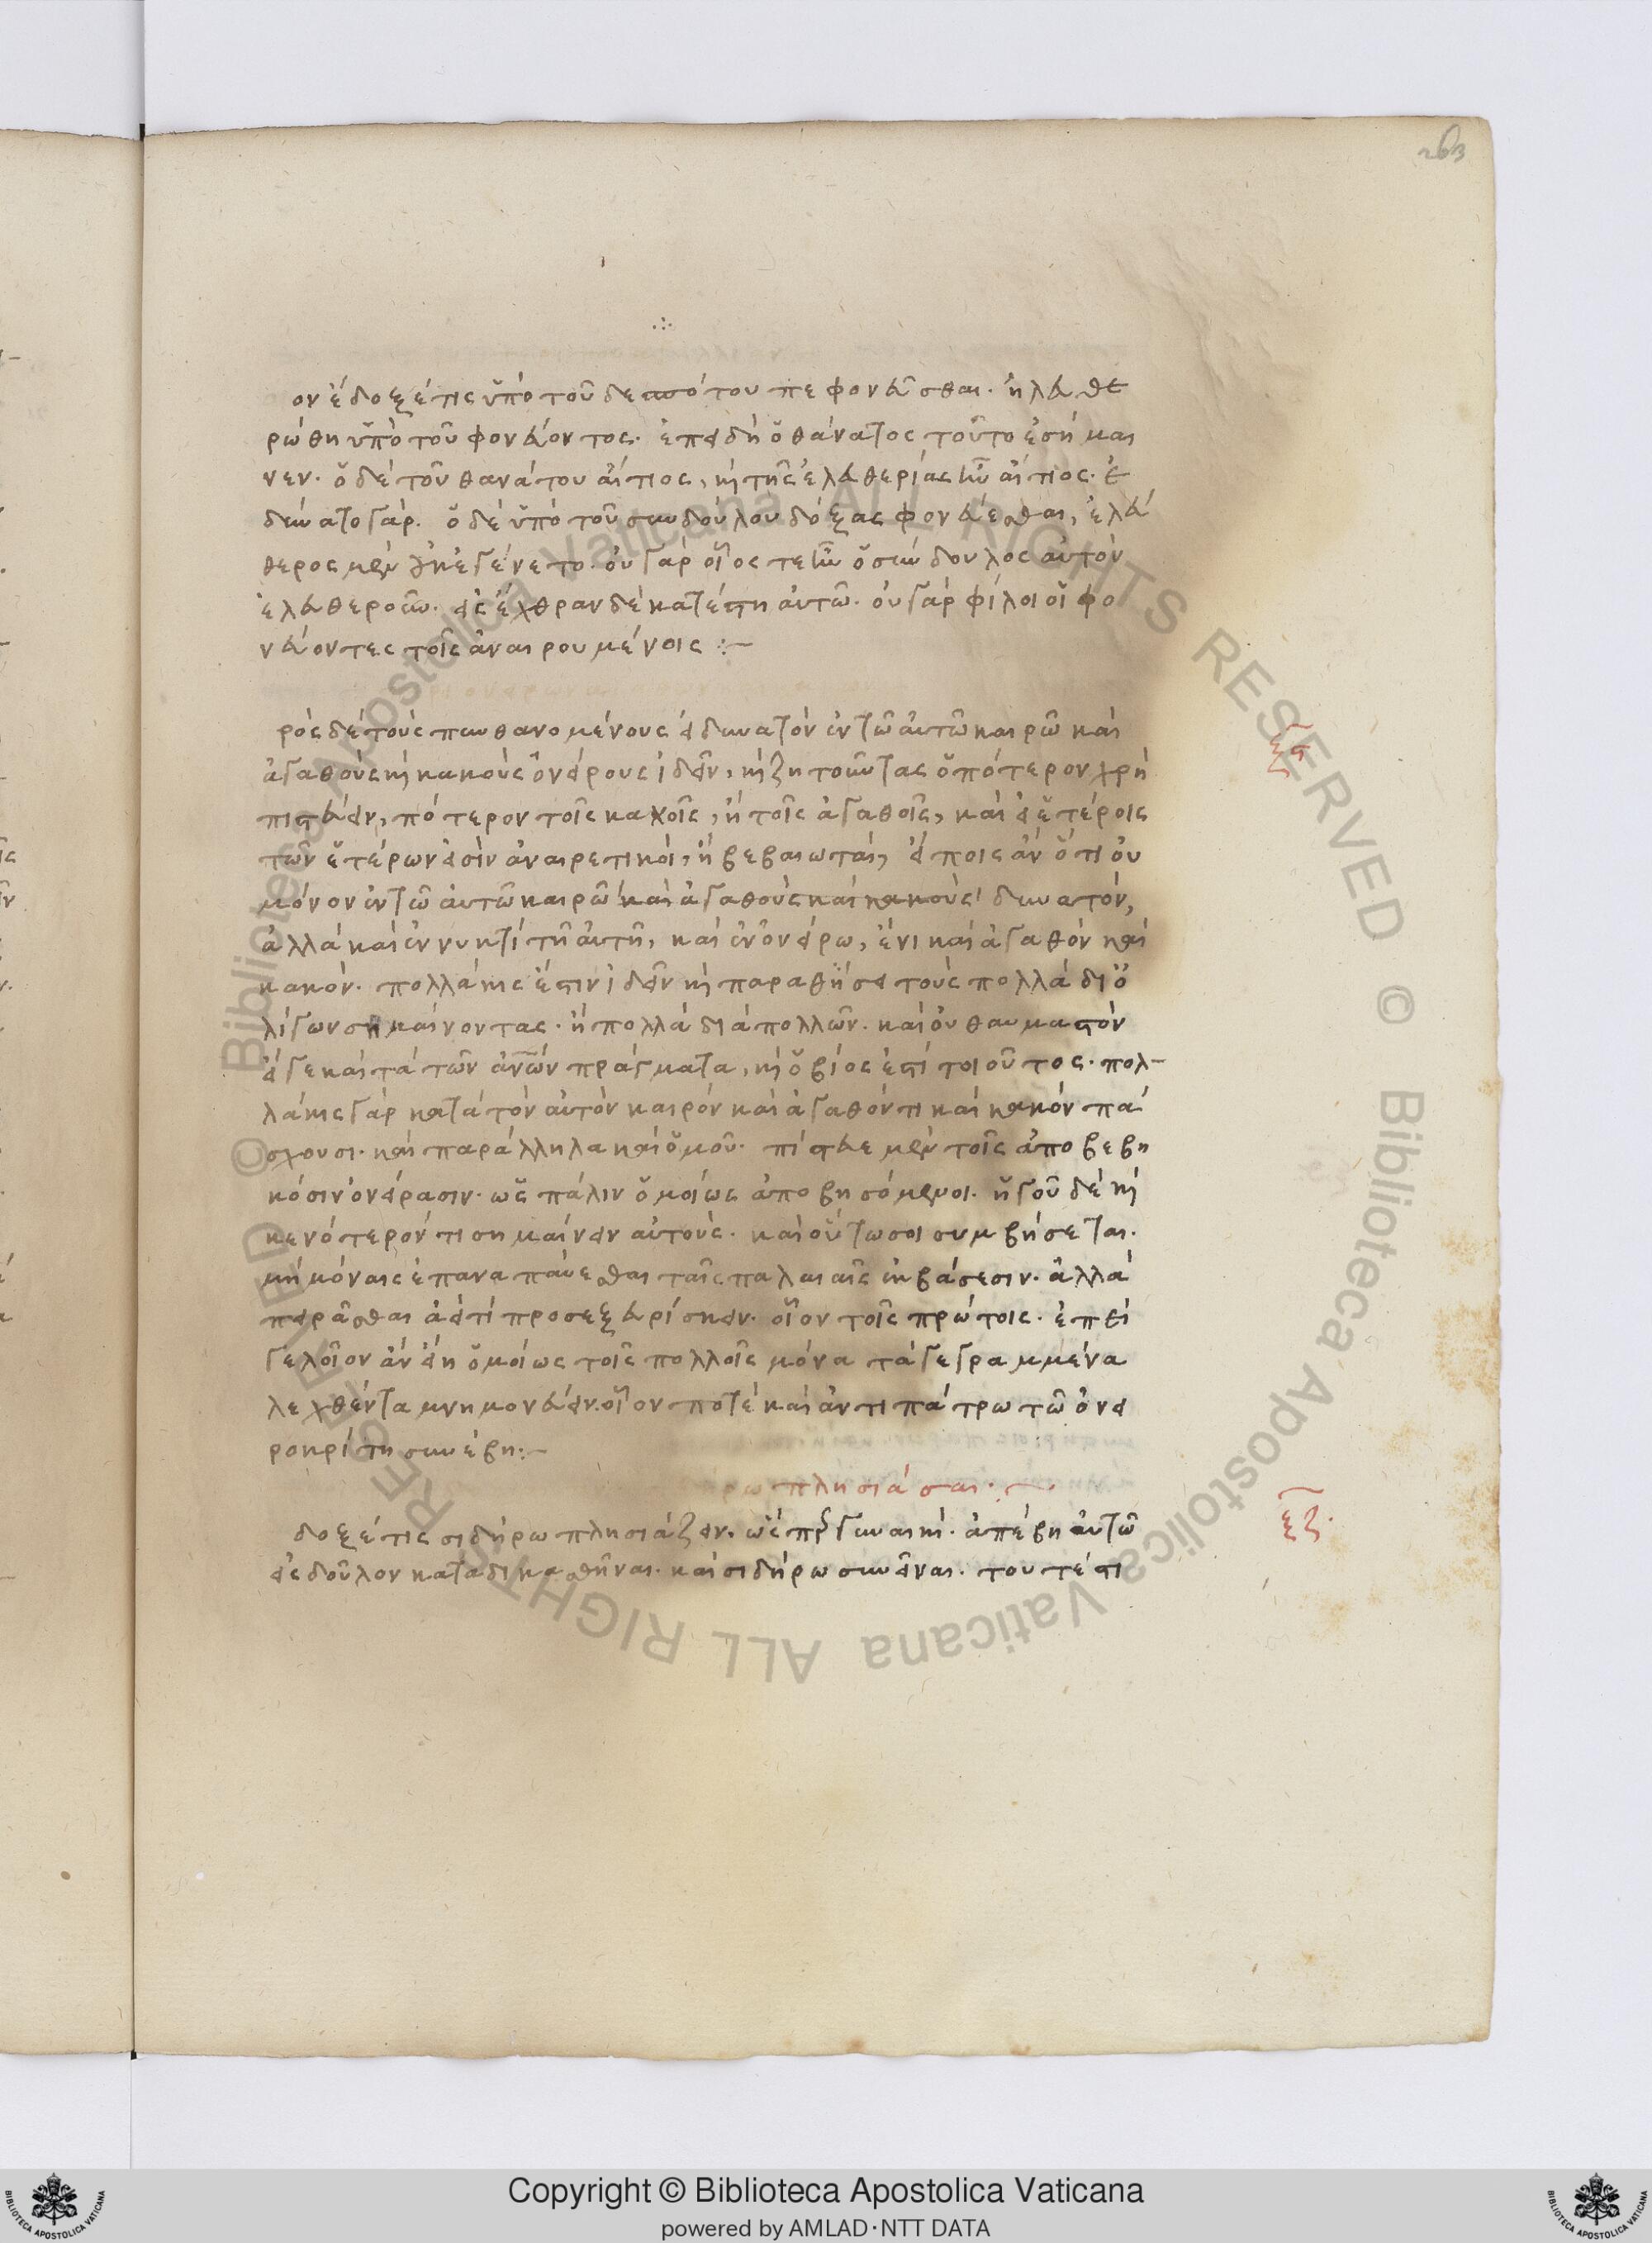 263
ον ἔδοξέ τις ὑπὸ τοῦ δεσπότου πεφονεῦσθαι. ἠλευθε
ρώθη ὑπὸ τοῦ φονεύοντος. ἐπειδὴ ὁ θάνατος τοῦτο ἐσήμαι
νεν. ὁ δὲ τοῦ θανάτου αἴτιος, καὶ τῆς ἐλευθερίας ἦν αἴτιος. ἐ
δύνατο γάρ. ὁ δὲ ὑπὸ τοῦ συνδούλου δόξας φονεύεσθαι, ἐλεύ
θερος μὲν οὐκ ἐγένετο. οὐ γὰρ οἷός τε ἦν ὁ σύνδουλος αὐτὸν
ἐλευθεροῦν. εἰς ἔχθραν δὲ κατέστη αὐτῶ. οὐ γὰρ φίλοι οἱ φο
νεύοντες τοῖς ἀναιρουμένοις :–
ρὸς δὲ τοὺς πυνθανομένους εἰ δυνατὸν ἐν τῶ αὐτῶ καιρῶ καὶ
ἀγαθοὺς καὶ κακοὺς ὀνείρους ἰδεῖν, καὶ ζητοῦντας ὁπότερον χρὴ
πιστεύειν, πότερον τοῖς κακοῖς, ἢ τοῖς ἀγαθοῖς, καὶ εἰ ἑτέροις
τῶν ἑτέρων εἰσὶν ἀναιρετικοὶ, ἢ βεβαιωταὶ, εἴποις ἂν ὅτι οὐ
μόνον ἐν τῶ αὐτῶ καιρῶ καὶ ἀγαθοὺς καὶ κακοὺς δυνατὸν,
ἀλλὰ καὶ ἐν νυκτὶ τῆ αὐτῆ, καὶ ἐν ὀνείρω, ἑνὶ καὶ ἀγαθὸν καὶ
κακόν. πολλάκις ἔστιν ἰδεῖν καὶ τοὺς πολλὰ δι ὀ
λίγων σημαίνοντας. ἢ πολλὰ διὰ πολλῶν. καὶ οὐ θαυμαστὸν
εἴ γε καὶ τὰ τῶν ἀνῶν πράγματα, καὶ ὁ βίος ἐστὶ τοιοῦτος. πολ–
λάκις γὰρ κατὰ τὸν αὐτὸν καιρὸν καὶ ἀγαθόν τι καὶ κακὸν πά
σχουσι. καὶ παράλληλα καὶ ὁμοῦ. πίστευε μὲν τοῖς ἀποβεβη
κόσιν ὀνείρασιν. ὡς πάλιν ὁμοίως ἀποβησόμενοι. ἡγοῦ δὲ καὶ
κενότερόν τι σημαίνειν αὐτούς. καὶ οὕτω σοι συμβήσεται.
μὴ μόναις ἐπαναπαύεσθαι ταῖς παλαιαῖς ἐκβάσεσιν. ἀλλὰ
πειρᾶσθαι ἀεί τι προσεξευρίσκειν. οἷον τοῖς πρώτοις. ἐπεὶ
γελοῖον ἂν εἴη ὁμοίως τοῖς πολλοῖς μόνα τὰ γεγραμμένα
λεχθέντα μνημονεύειν. οἷον ποτὲ καὶ ἀντιπάτρω τῶ ὀνει
ροκρίτη συνέβη :–
ρω πλησιάσαι.
ξϛ
δοξέ τις σιδήρω πλησιάζειν. ὥσπερ γυναικί. ἀπέβη αὐτῶ
ξζ.
εἰς δοῦλον καταδικασθῆναι. καὶ σιδήρω συνεῖναι. τουτέστι
Copyright © Biblioteca Apostolica Vaticana
powered by AMLAD·NTT DATA